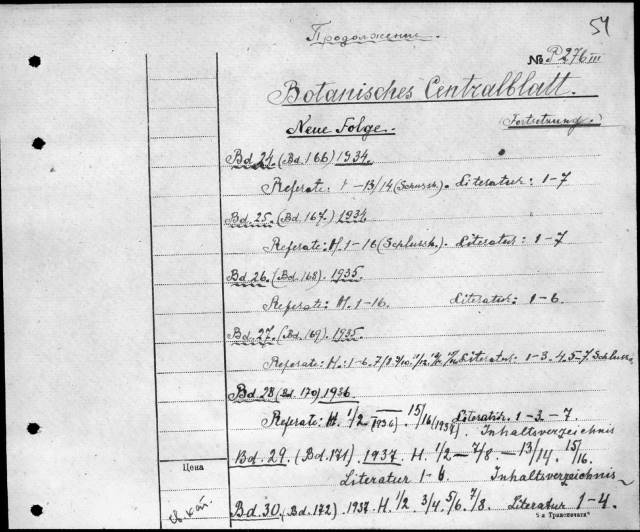 Продолжение.
54
№ P276 III
Botanisches Centralblatt.
Neue Folge.
(Fortsetzung.)
Bd. 24. (Bd. 166) 1934.
Referate: 1-13/14 (Schlussh.). Literatur: 1-7
Bd. 25. (Bd. 167.) 1934
Referate: H. 1-16 (Schlussh.). Literatur: 1-7
Bd. 26. (Bd. 168). 1935.
Referate: H. 1-16. Literatur: 1-6.
Bd. 27. (Bd. 169). 1935.
Referate: H. 1-6. 7/8 9/10. 11/12. Literatur: 1-3. 4. 5-7 Schluss
Bd. 28 (Bd. 170) 1936
Referate: H. 1/2 - (1936) 15/16 (1937). Literatur. 1-3-7.
Inhaltsverzeichnis
Bd. 29. (Bd. 171). 1937. H. 1/2-7/8.-13/14. 15/16.
Literatur 1-6. Inhaltsverzeichnis
Цена
Bd. 30. (Bd. 172) 1937. H. 1/2. 3/4. 5/6. 7/8. Literatur 1-4.
Транспечати"